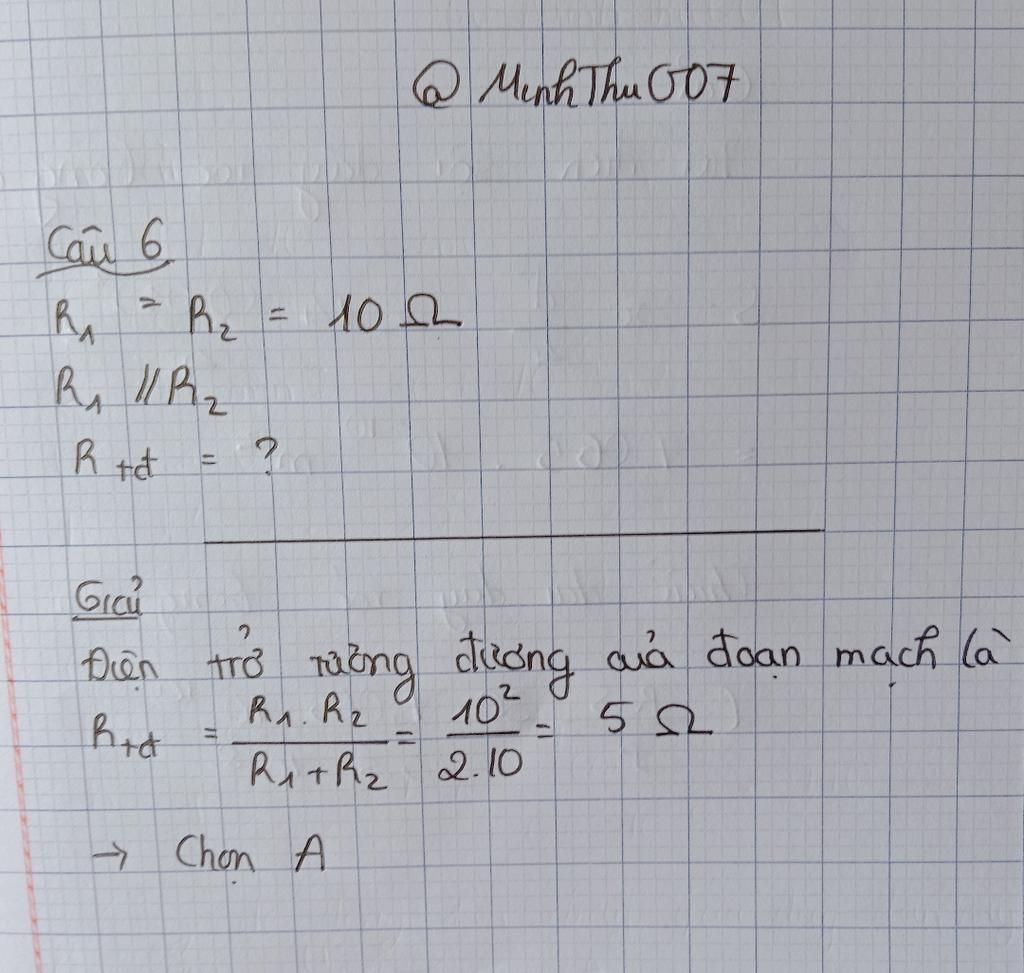 @ MinhThu007
Câu 6
R₁ = R₂ = 10 Ω
R₁ // R₂
Rtđ = ?
Giải
Điện trở tương đương của đoạn mạch là
Rtđ = R₁.R₂ / R₁+R₂ = 10² / 2.10 = 5 Ω
→ Chọn A